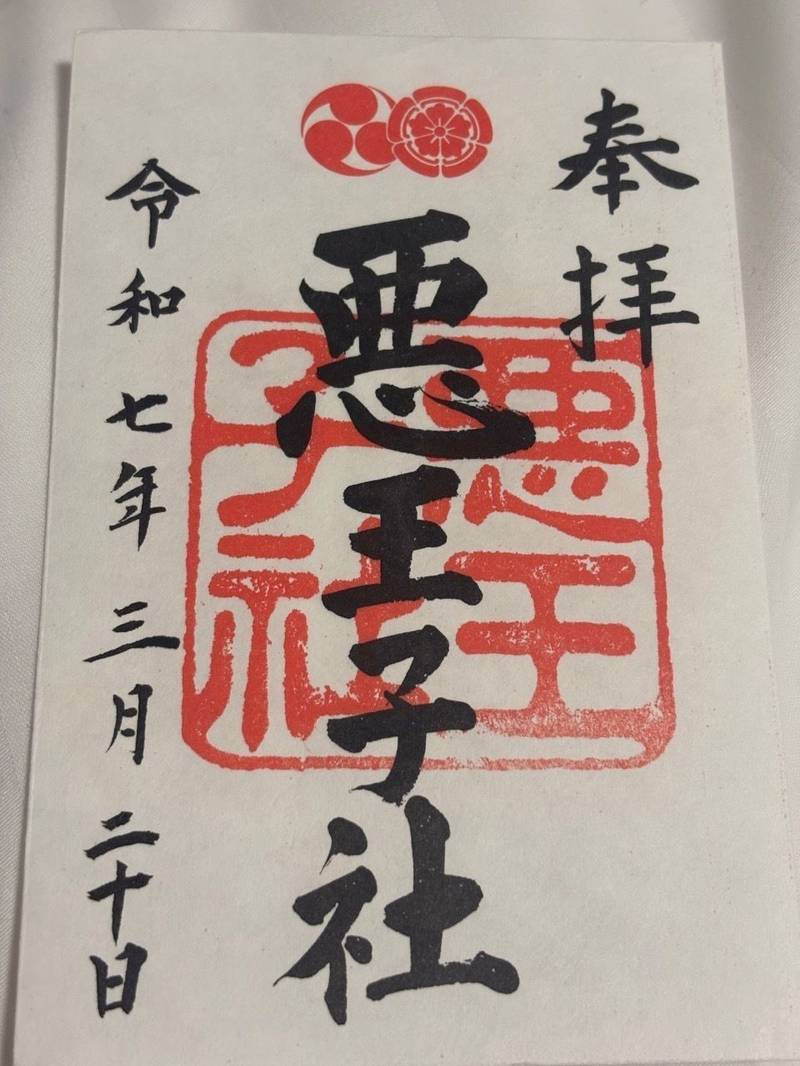 奉拝
悪王子社
悪王子社
令和七年三月二十日